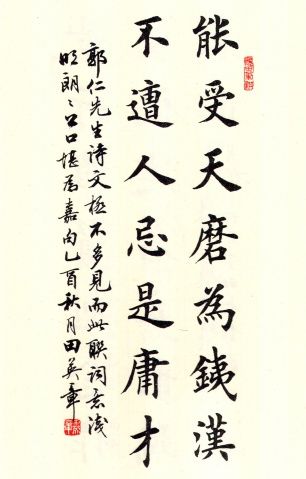 能受天磨為銕漢
不遭人忌是庸才
郭仁先生诗文極不多見而此聯詞意浅
明朗朗上口堪為嘉句乙酉秋月田英章